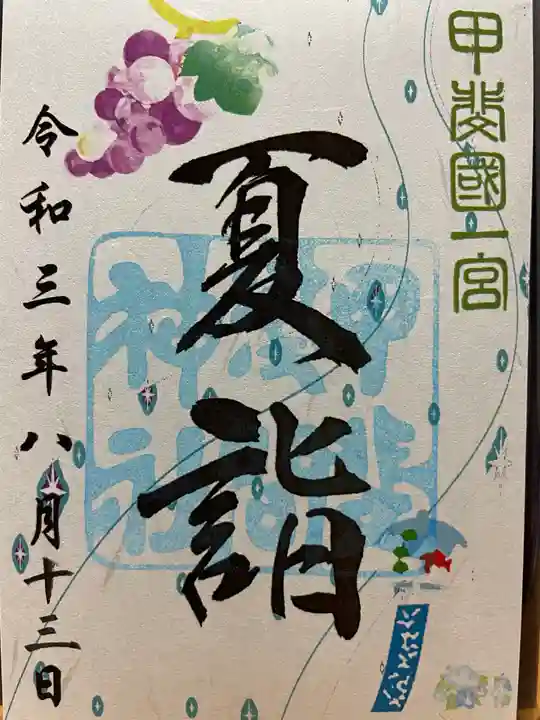 甲斐國一宮
夏詣
甲斐
浅間
神社
令和三年八月十三日